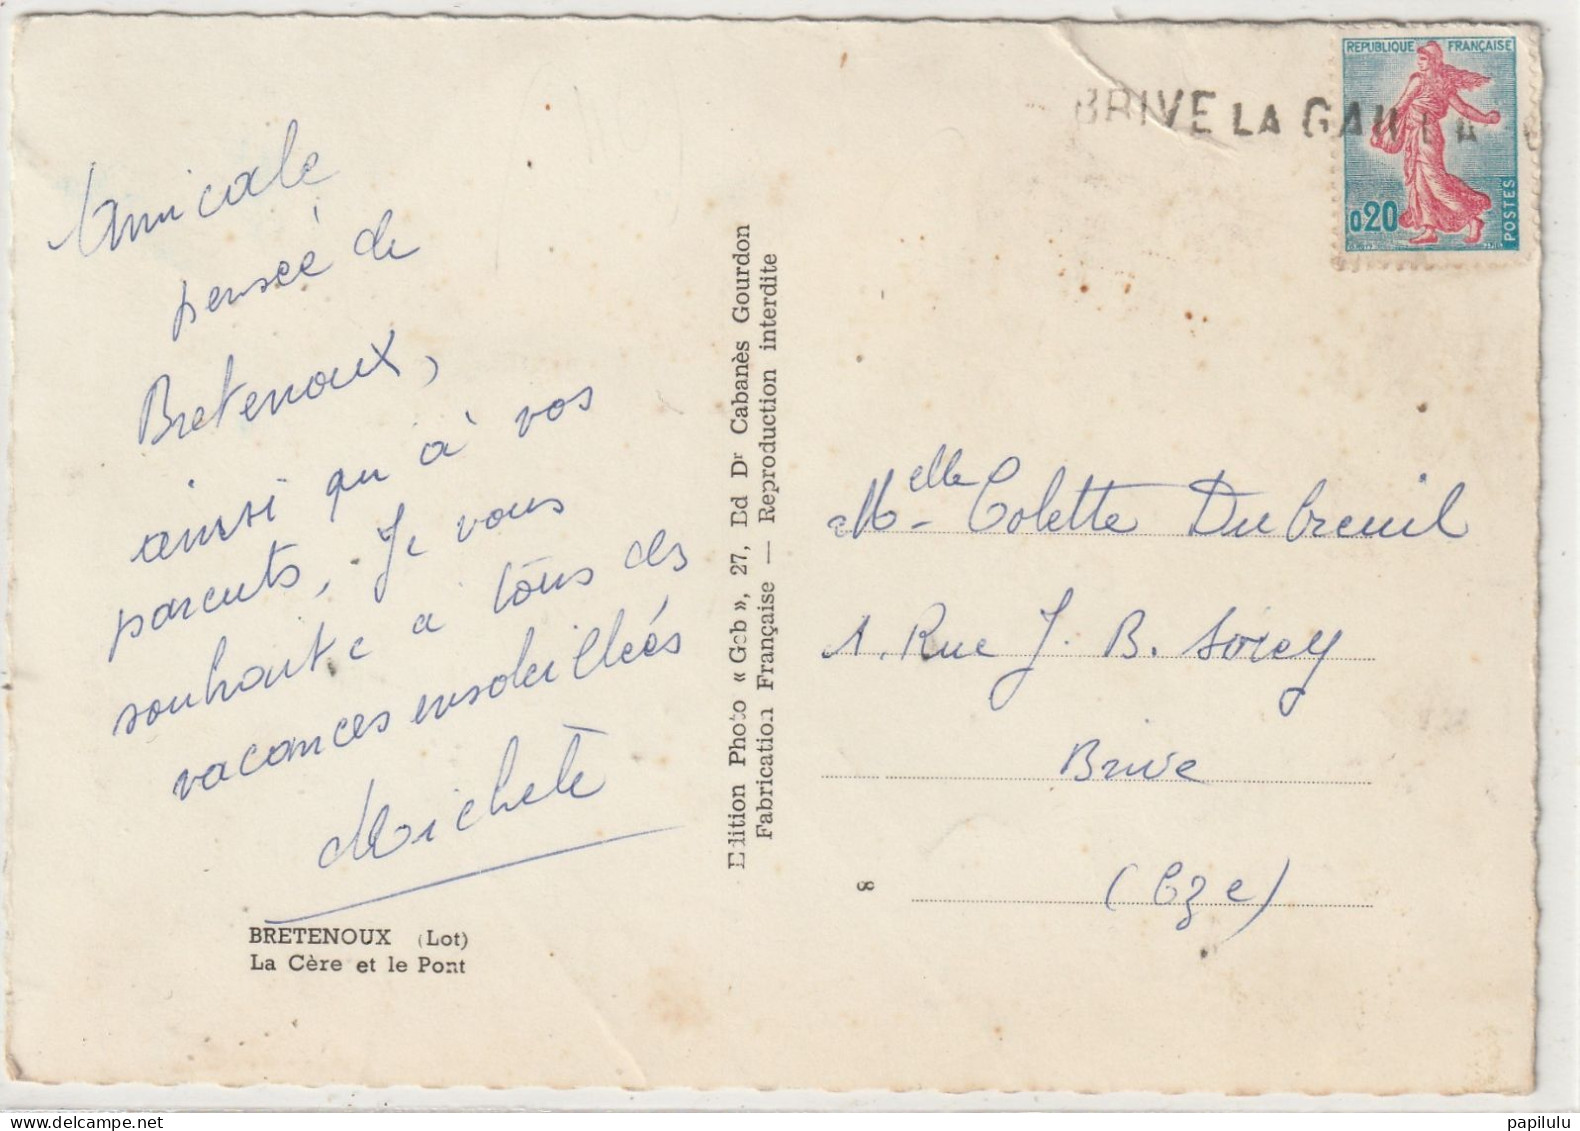 Amicale
pensée de
Bretenoux,
ainsi qu'à vos
parents, Je vous
souhaite a tous des
vacances ensoleillées
Michele
BRETENOUX (Lot)
La Cère et le Pont
Edition Photo « Gob », 27, Bd Dr Cabanès Gourdon
Fabrication Française — Reproduction interdite
REPUBLIQUE FRANÇAISE
0,20
POSTES
BRIVE LA GAILLA
Melle Colette Dubreuil
1. Rue J. B. Sorey
Brive
(Cze)
8
papilulu